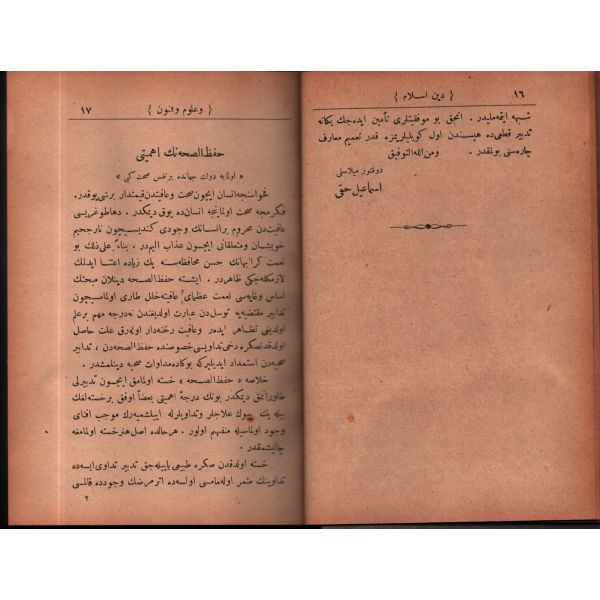 ١٦ { دين اسلام }
شبهه ايتمه مليدر . انجق بو موفقيتلرى تأمين ايده جك يكانه
تدبير قطعى ده هپسندن اول كويليلريمزه قدر تعميم معارف
چاره سنى بولمقدر . ومن الله التوفيق
دوقتور ميلاسلى
اسماعيل حقى
{ وعلوم وفنون } ١٧
حفظ الصحه نك اهميتى
« اولمايه دولت جهانده بر نفس صحت كبى »
فحواسنجه انسان ايچون صحت وعافيتدن قيمتدار برشى يوقدر .
فكرمجه صحت اولماينجه انسان ده يوق ديمكدر . دها طوغريسى
عافيتدن محروم بر انسانك وجودى كنديسيچون نارجحيم
خويشان ومتعلقانى ايچون عذاب اليمدر . بناءً على ذلك بو
نعمت كرانبهانك حسن محافظه سنه پك زياده اعتنا ايدلمك
لازمكله جكى ظاهردر . ايشته حفظ الصحه دينلان مبحثك
اساس وغايه سى نعمت عظماى عافيته خلل طارى اولمامسيچون
تدابير مقتضيه يه توسلدن عبارت اولديغندن نه درجه مهم بر علم
اولديغى تظاهر ايدر وعافيت رخنه دار اوله رق علت حاصل
اولدقدنصكره دخى تداويسى خصوصنده حفظ الصحه دن ، تدابير
صحيه دن استمداد ايديليركه بوكاده مداوات صحيه دينلمشدر .
خلاصه « حفظ الصحه » خسته اولمامق ايچون تدبيرلى
طاورانمق ديمكدر بونك درجهٔ اهميتى بعضاً اوفق بر خسته لغك
بيله پك بيوك علاجلر وتداويلرله اييلشميه رك موجب افناى
وجود اولماسيله منفهم اولور . هرحالده اصل هنر خسته اولمامغه
چاليشمقدر .
خسته اولدقدن صكره طبيعى ياپيله جق تدبير تداوى ايسه ده
تداوينك مثمر اوله مامسى اولسه ده اثر مرضك وجودده قالمسى
٢